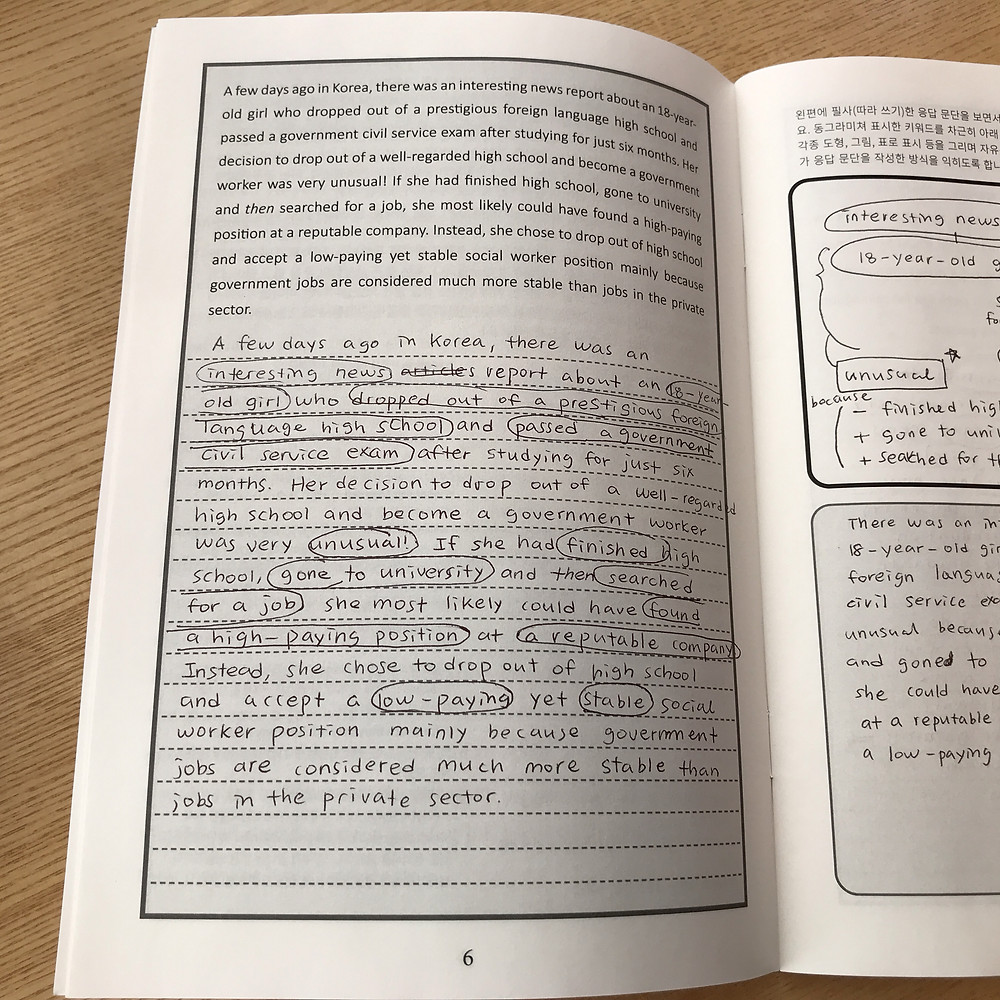 A few days ago in Korea, there was an interesting news report about an 18-year-
old girl who dropped out of a prestigious foreign language high school and
passed a government civil service exam after studying for just six months. Her
decision to drop out of a well-regarded high school and become a government
worker was very unusual! If she had finished high school, gone to university
and then searched for a job, she most likely could have found a high-paying
position at a reputable company. Instead, she chose to drop out of high school
and accept a low-paying yet stable social worker position mainly because
government jobs are considered much more stable than jobs in the private
sector.
A few days ago in Korea, there was an
interesting news articles report about an 18-year-
old girl who dropped out of a prestigious foreign
language high school and passed a government
civil service exam after studying for just six
months. Her decision to drop out of a well-regarded
high school and become a government worker
was very unusual! If she had finished high
school, gone to university and then searched
for a job, she most likely could have found
a high-paying position at a reputable company.
Instead, she chose to drop out of high school
and accept a low-paying yet stable social
worker position mainly because government
jobs are considered much more stable than
jobs in the private sector.
6
왼편에 필사(따라 쓰기)한 응답 문단을 보면서
요. 동그라미쳐 표시한 키워드를 차근히 아래
각종 도형, 그림, 표로 표시 등을 그리며 자유
가 응답 문단을 작성한 방식을 익히도록 합니
interesting news
18-year-old g
unusual
because
- finished hig
+ gone to uni
+ searched for th
There was an in
18-year-old gir
foreign langua
civil service exa
unusual becaus
and goned to
she could have
at a reputable
a low-paying